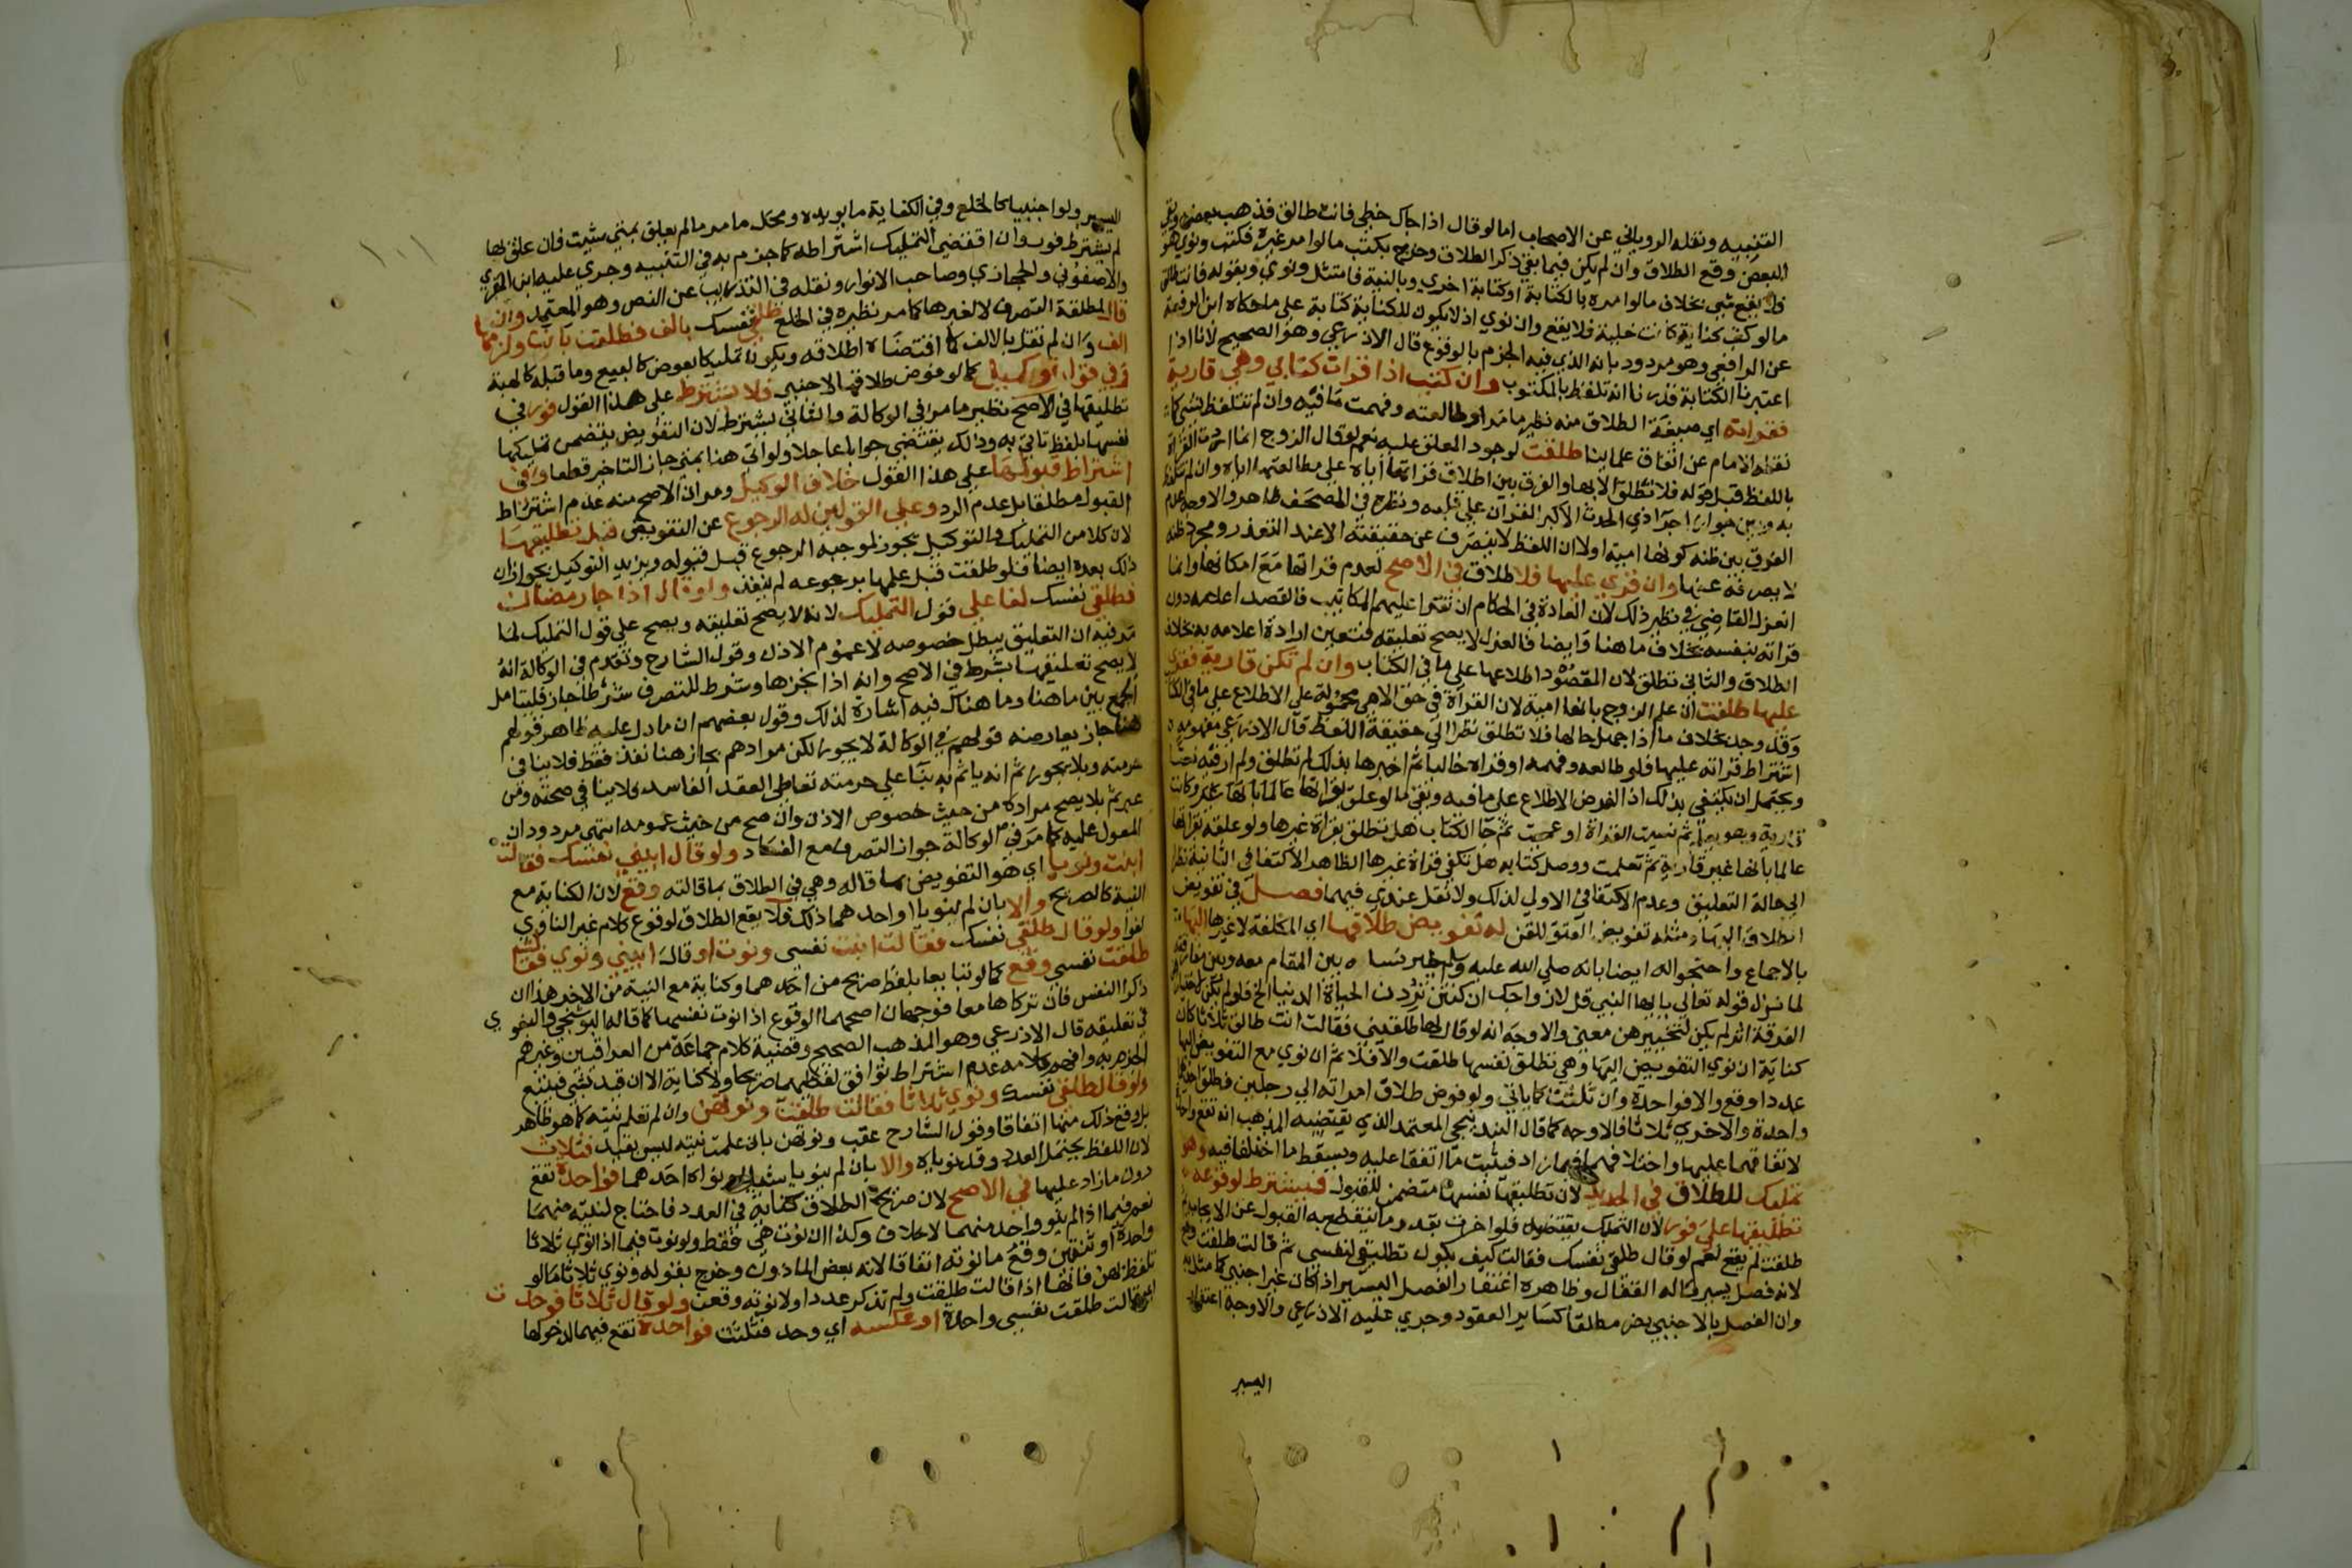 التنبيه ونقله الروياني عن الاصحاب اما لو قال اذا جاك خطي فانت طالق فذهب بعضه وبقي
البعض وقع الطلاق وان لم يكن فيما بقي ذكر الطلاق وخرج بكتب ما لو امر غيره فكتب ونوي هو
فلا يقع شي بخلاف ما لو امره بالكتابة او كتابة اخري وبالنية فامتثل ونوي وبقوله فانت طالق
ما لو كتب كناية كانت خلية فلا يقع وان نوي اذ لا يكون للكناية كناية علي ما حكاه ابن الرفعة
عن الرافعي وهو مردود بانه الذي فيه الجزم بالوقوع قال الاذرعي وهو الصحيح لانا اذا
اعتبرنا الكتابة قدرنا انه تلفظ بالمكتوب وان كتب اذا قرات كتابي وهي قارية
فقراته اي صيغة الطلاق منه نظير ما مر او طالعته وفهمت ما فيه وان لم تتلفظ بشي كما
نقله الامام عن اتفاق علماينا طلقت لوجود المعلق عليه نعم لو قال الزوج انما اردت القراة
باللفظ قبل قوله فلا تطلق الا بها والفرق بين اطلاق قراتها اياه علي مطالعتها اياه وان لم تتلفظ
به وبين جواز اجرا ذي الحدث الاكبر القران علي قلبه ونظره في المصحف ظاهر والاوجه عدم
الفرق بين ظنه كونها امية او لا ان اللفظ لا ينصرف عن حقيقته الا عند التعذر ومجرد ظنه
لا يصرفه عنها وان قري عليها فلا طلاق في الاصح لعدم قراتها مع امكانها وانما
انعزل القاضي في نظير ذلك لان العادة في الحكام ان تقرا عليهم المكاتيب فالقصد اعلامه دون
قراته بنفسه بخلاف ما هنا وايضا فالعزل لا يصح تعليقه فتعين ارادة اعلامه به بخلاف
الطلاق والثاني تطلق لان المقصود اطلاعها علي ما في الكتاب وان لم تكن قارية فقري
عليها طلقت ان علم الزوج بانها امية لان القراة في حق الامي محمولة علي الاطلاع علي ما في الكتاب
وقد وجد بخلاف ما اذا جهل حالها فلا تطلق نظرا الي حقيقة اللفظ قال الاذرعي مفهومه
اشتراط قراته عليها فلو طالعه وفهمه او قراه خاليا ثم اخبرها بذلك لم تطلق ولم ار فيه نصا
ويحتمل ان يكتفي بذلك اذ الغرض الاطلاع علي ما فيه وبقي ما لو علق بقراتها عالما بانها غير وكانت
قارية ثم نسيت القراة او عميت ثم جا الكتاب هل تطلق بقراة غيرها ولو علقه بقراتها
عالما بانها غير قارية ثم تعلمت ووصل كتابه هل يكفي قراة غيرها الظاهر الاكتفا في الثانية نظرا
الي حالة التعليق وعدم الاكتفا في الاولي لذلك ولا نقل عندي فيهما فصل في تفويض
الطلاق اليها ومثله تفويض العتق للقن له تفويض طلاقها اي المكلفة لا غيرها اليها
بالاجماع واحتجوا له ايضا بانه صلي الله عليه وسلم خير نساه بين المقام معه وبين مفارقته
لما نزل قوله تعالي يا ايها النبي قل لازواجك ان كنتن تردن الحياة الدنيا الخ فلو لم يكن لاختيارهن
الفرقة اثر لم يكن لتخييرهن معني والاوجه انه لو قال لها طلقيني فقالت انت طالق ثلاثا كان
كناية ان نوي التفويض اليها وهي تطلق نفسها طلقت والا فلا ثم ان نوي مع التفويض اليها
عددا وقع والا فواحدة وان ثلثت كما ياتي ولو فوض طلاق امراته الي رجلين فطلق احدهما
واحدة والاخري ثلاثا فالاوجه كما قال البندنيجي المعتمد الذي يقتضيه المذهب انه تقع واحدة
لاتفاقهما عليها واختلافهما فيما زاد فيثبت ما اتفقا عليه ويسقط ما اختلفا فيه وهو
تمليك للطلاق في الجديد لان تطليقها نفسها متضمن للقبول فيشترط لوقوعه
تطليقها علي فور لان التمليك يقتضيه فلو اخرت بقدر ما ينقطع به القبول عن الايجاب ثم
طلقت لم يقع نعم لو قال طلقي نفسك فقالت كيف يكون تطليقي لنفسي ثم قالت طلقت وقع
لانه فصل يسير قاله القفال وظاهره اغتفار الفصل اليسير اذا كان غير اجنبي كما مثل به
وان الفصل بالاجنبي يضر مطلقا كساير العقود وجري عليه الاذرعي والاوجه اغتفار
اليسير
اليسير ولو اجنبيا كالخلع وفي الكفاية ما يويده ومحل ما مر ما لم يعلق بمتي شيت فان علق بها
لم يشترط فور وان اقتضي التمليك اشتراطه كما جزم به في التنبيه وجري عليه ابن المقري
والاصفوني والحجازي وصاحب الانوار ونقله في التدريب عن النص وهو المعتمد وان
قال لمطلقة التصرف لا لغيرها كما مر نظيره في الخلع طلقي نفسك بالف فطلقت بانت ولزمها
الف وان لم تقل بالالف كما اقتضاه اطلاقه ويكون تمليكا بعوض كالبيع وما قبله كالهبة
وفي قول توكيل كما لو فوض طلاقها لاجنبي فلا يشترط علي هذا القول فور في
تطليقها في الاصح نظير ما مر في الوكالة والثاني يشترط لان التفويض يتضمن تمليكها
نفسها بلفظ تاتي به وذلك يقتضي جوابا عاجلا ولو اتي هنا بمتي جاز التاخير قطعا وفي
اشتراط قبولها علي هذا القول خلاف الوكيل ومر ان الاصح منه عدم اشتراط
القبول مطلقا بل عدم الرد وعلي القولين له الرجوع عن التفويض قبل تطليقها
لان كلا من التمليك والتوكيل يجوز لموجبه الرجوع قبل قبوله ويزيد التوكيل بجواز ان
ذلك بعده ايضا فلو طلقت قبل علمها برجوعه لم ينفذ ولو قال اذا جا رمضان
فطلقي نفسك لغا علي قول التمليك لانه لا يصح تعليقه ويصح علي قول التمليك لما
مر فيه ان التعليق يبطل خصوصه لا عموم الاذن وقول الشارح وتقدم في الوكالة انه
لا يصح تعليقها بشرط في الاصح وانه اذا نجزها وشرط للتصرف شرطا جاز فليتامل
الجمع بين ما هنا وما هناك فيه اشارة لذلك وقول بعضهم ان ما دل عليه ظاهر قولهم
هنا جاز يعارضه قولهم في الوكالة لا يجوز لكن مرادهم بجاز هنا نفذ فقط فلا ينافي
حرمته وبلا يجوز ثم انه ياثم به بنا علي حرمته تعاطي العقد الفاسد فلا ينافي صحته ومن
عبر ثم بلا يصح مراده من حيث خصوص الاذن وان صح من حيث عمومه انتهي مردود ان
المعول عليه كما مر في الوكالة جواز التصرف مع الفساد ولو قال ابيني نفسك فقالت
ابنت ونويا اي هو التفويض بما قاله وهي في الطلاق بما قالته وقع لان الكناية مع
النية كالصريح والا بان لم ينويا او احدهما ذلك فلا يقع الطلاق لوقوع كلام غير الناوي
لغوا ولو قال طلقي نفسك فقالت ابنت نفسي ونوت او قال ابيني ونوي فقالت
طلقت نفسي وقع كما لو تبايعا بلفظ صريح من احدهما وكناية مع النية من الاخر هذا ان
ذكرا النفس فان تركاها معا فوجهان اصحهما الوقوع اذا نوت نفسها كما قاله البوشنجي والبغوي
في تعليقه قال الاذرعي وهو المذهب الصحيح وقضية كلام جماعة من العراقيين وغيرهم
الجزم به وافهم كلامه عدم اشتراط توافق لفظيهما صريحا ولا كناية الا ان قيد بشي فيتبع
ولو قال طلقي نفسك ونوي ثلاثا فقالت طلقت ونوتهن وان لم تعلم نيته كما هو ظاهر
بل وقع ذلك منها اتفاقا وقول الشارح عقب ونوتهن بان علمت نيته ليس بقيد فثلاث
لان اللفظ يحتمل العدد وقد نوياه والا بان لم ينويا شيا او نواه احدهما فواحدة تقع
دون ما زاد عليها في الاصح لان صريح الطلاق كناية في العدد فاحتاج لنيته منهما
نعم فيما اذا لم ينو واحد منهما لا خلاف وكذا ان نوت هي فقط ولو نوت فيما اذا نوي ثلاثا
واحدة او ثنتين وقع ما نوته اتفاقا لانه بعض الماذون وخرج بقوله ونوي ثلاثا ما لو
تلفظ بهن فانها اذا قالت طلقت ولم تذكر عددا ولا نوته وقعن ولو قال ثلاثا فوحدت
اي قالت طلقت نفسي واحدة او عكسه اي وحد فثلثت فواحدة تقع فيهما لدخولها